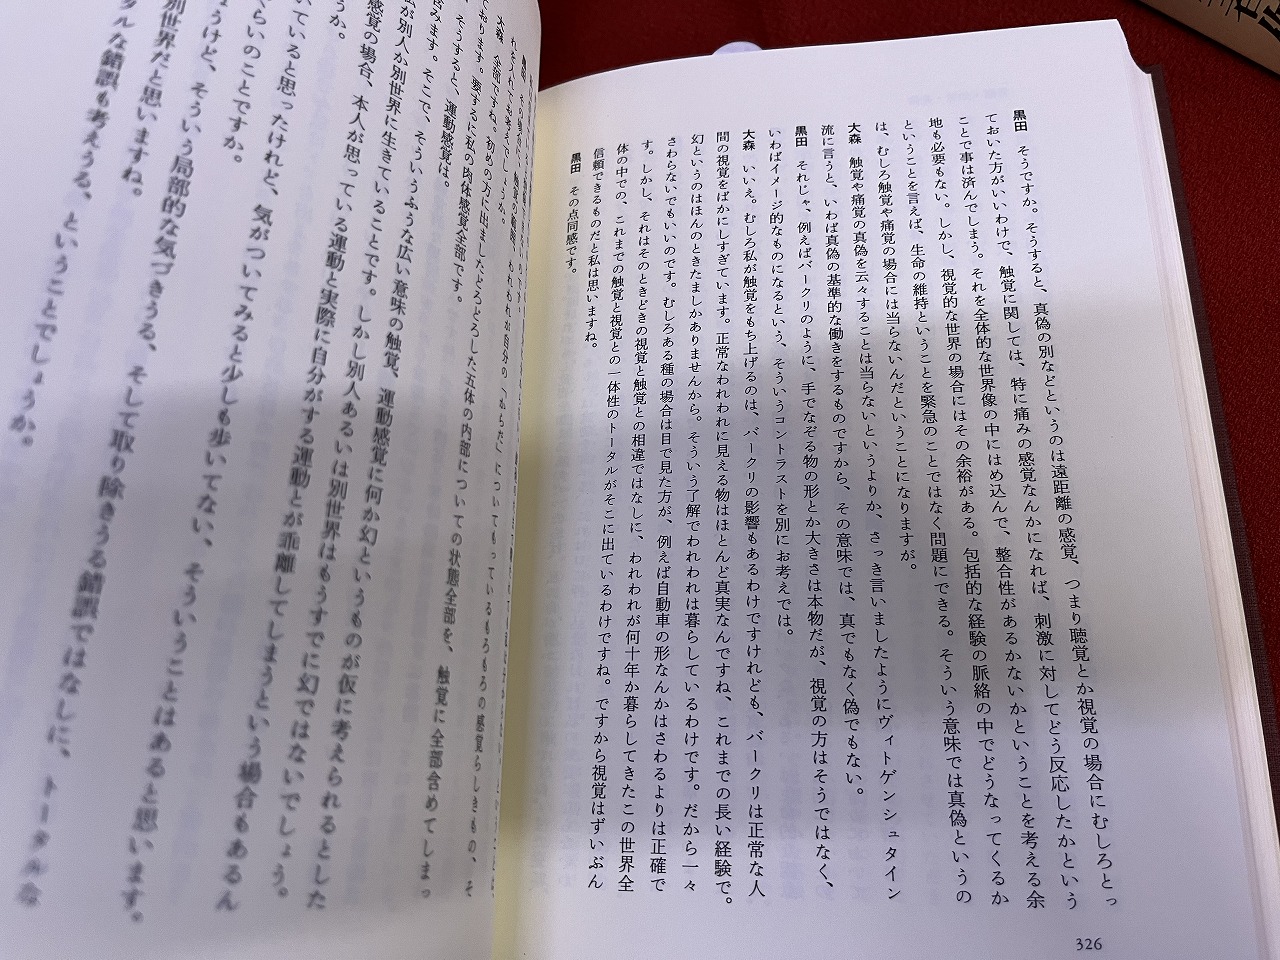 黒田　そうですか。そうすると、真偽の別などというのは遠距離の感覚、つまり聴覚とか視覚の場合にむしろとっ
ておいた方がいいわけで、触覚に関しては、特に痛みの感覚なんかになれば、刺激に対してどう反応したかという
ことで事は済んでしまう。それを全体的な世界像の中にはめ込んで、整合性があるかないかということを考える余
地も必要もない。しかし、視覚的な世界の場合にはその余裕がある。包括的な経験の脈絡の中でどうなってくるか
ということを言えば、生命の維持ということを緊急のことではなく問題にできる。そういう意味では真偽というの
は、むしろ触覚や痛覚の場合には当らないんだということになりますが。
大森　触覚や痛覚の真偽を云々することは当らないというよりか、さっき言いましたようにヴィトゲンシュタイン
流に言うと、いわば真偽の基準的な働きをするものですから、その意味では、真でもなく偽でもない。
黒田　それじゃ、例えばバークリのように、手でなぞる物の形とか大きさは本物だが、視覚の方はそうではなく、
いわばイメージ的なものになるという、そういうコントラストを別にお考えでは。
大森　いいえ。むしろ私が触覚をもち上げるのは、バークリの影響もあるわけですけれども、バークリは正常な人
間の視覚をばかにしすぎています。正常なわれわれに見える物はほとんど真実なんですね、これまでの長い経験で。
幻というのはほんのときたましかありませんから。そういう了解でわれわれは暮らしているわけです。だから一々
さわらないでもいいのです。むしろある種の場合は目で見た方が、例えば自動車の形なんかはさわるよりは正確で
す。しかし、それはそのときどきの視覚と触覚との相違ではなしに、われわれが何十年か暮らしてきたこの世界全
体の中での、これまでの触覚と視覚との一体性のトータルがそこに出ているわけですね。ですから視覚はずいぶん
信頼できるものだと私は思いますね。
黒田　その点同感です。
326
われわれが自分の「からだ」についてもっているもろもろの感覚らしきもの、そ
れをうれてお考えでしょうか。
大森　全部ですね。初めの方に出ましたどろどろした五体の内部についての状態全部を、触覚に全部含めてしまっ
ております。要するに私の肉体感覚全部です。
そうすると、運動感覚は。
含みます。そこで、そういうふうな広い意味の触覚、運動感覚に何か幻というものが仮に考えられるとした
私が別人か別世界に生きていることです。しかし別人あるいは別世界はもうすでに幻ではないでしょう。
感覚の場合、本人が思っている運動と実際に自分がする運動とが乖離してしまうという場合もあるん
ょうか。
いていると思ったけれど、気がついてみると少しも歩いてない、そういうことはあると思います。
くらいのことですか。
ょうけど、そういう局部的な気づきうる、そして取り除きうる錯誤ではなしに、トータルな
別世界だと思いますね。
タルな錯誤も考えうる、ということでしょうか。